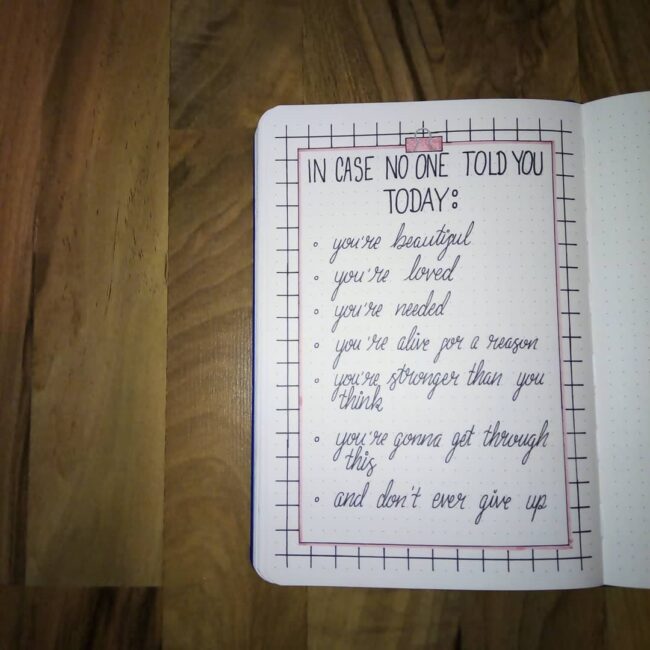 IN CASE NO ONE TOLD YOU
TODAY:
◦ you're beautiful
◦ you're loved
◦ you're needed
◦ you're alive for a reason
◦ you're stronger than you
think
◦ you're gonna get through
this
◦ and don't ever give up